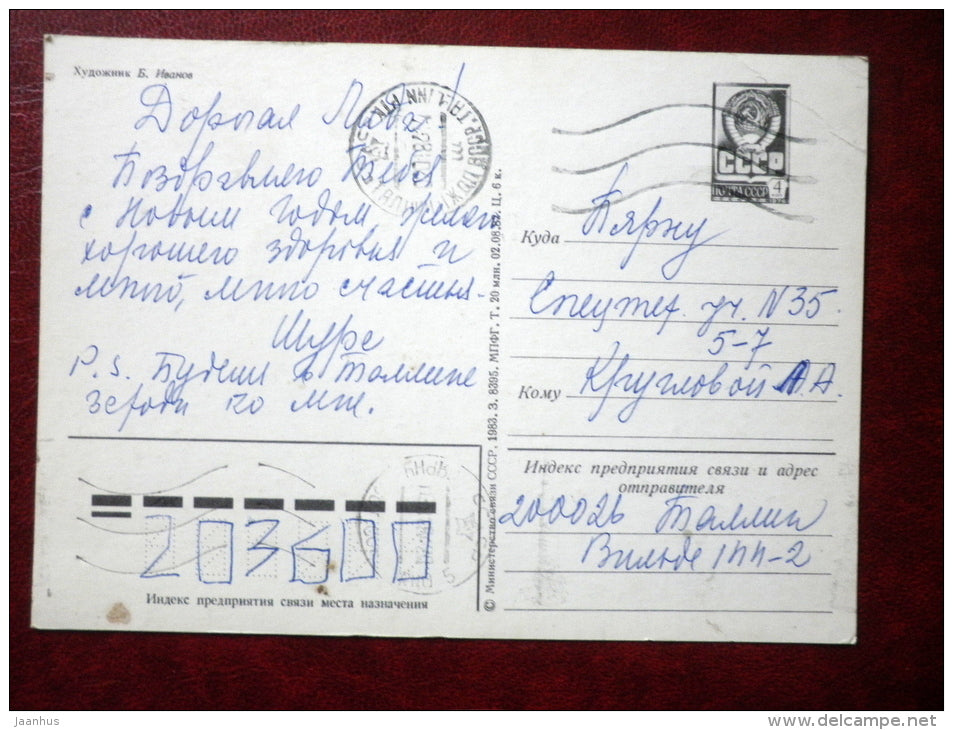 Художник Б. Иванов
Дорогая Люба!
Поздравляю Тебя
с Новым годом, желаю
хорошего здоровья и
много, много счастья.
Шура
P.S. Будешь в Таллине
заходи ко мне.
СССР
ПОЧТА СССР 4
Куда Пярну
Спецтех. уч. N35
5-7
Кому Кругловой А.А.
Индекс предприятия связи и адрес
отправителя
200026 Таллин
Вильде 111-2
203600
Индекс предприятия связи места назначения
© Министерство связи СССР, 1983. З. 8395. МПФГ. Т. 20 млн. 02.08.83. Ц. 6 к.
TALLINN
ПЯРНУ
jaanhus
www.delcampe.net